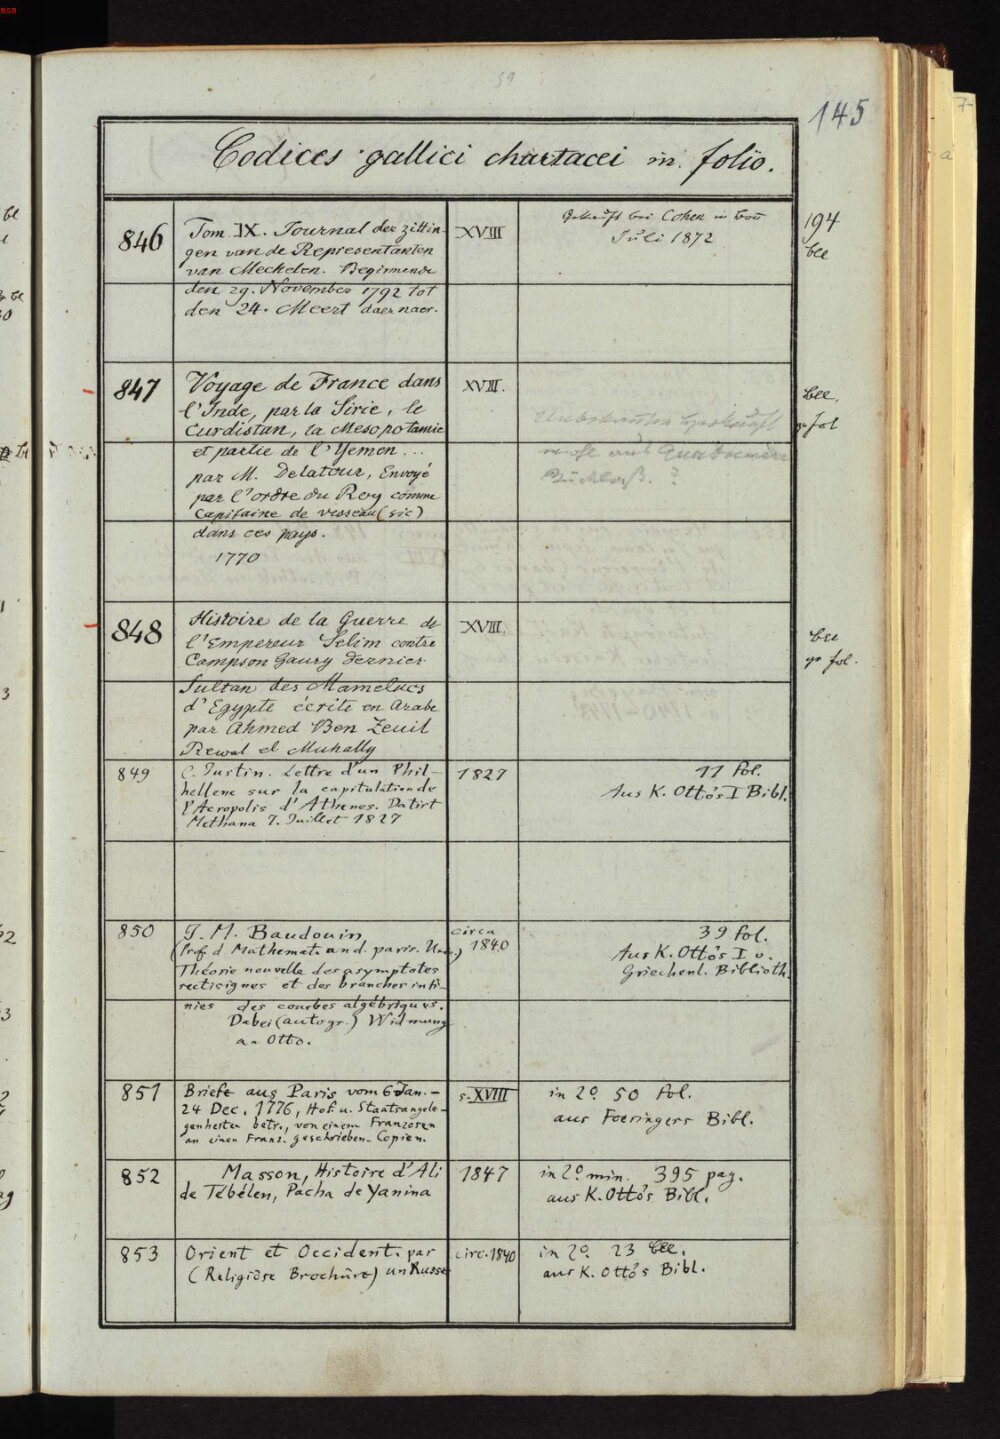 BSB
59
145
Codices gallici chartacei in folio.
846
Tom IX. Journal der zittin-
gen van de Representanten
van Mechelen. Beginnende
den 29. November 1792 tot
den 24. Meert daer naer.
XVIII
Gekauft bei Cohen in Bonn
Juli 1872
194
bll
847
Voyage de France dans
l'Inde, par la Sirie, le
Curdistan, la Mesopotamie
et partie de l'Yemen ...
par M. Delatour, Envoyé
par l'ordre du Roy comme
Capitaine de vesseau (sic)
dans ces pays.
1770
XVIII.
wohl aus Quatremère
?
bll.
gr fol
848
Histoire de la Guerre de
l'Empereur Selim contre
Campson Gaury dernier
Sultan des Mamelucs
d'Egypte écrite en Arabe
par Ahmed Ben Zeuil
Rewal el Muhally
XVIII.
bll
gr fol.
849
C. Justin. Lettre d'un Phil-
hellene sur la capitulation de
l'Acropolis d'Athenes. Datirt
Methana 7. Juillet 1827
1827
11 fol.
Aus K. Otto's I Bibl.
850
J. M. Baudouin
(Prof. d. Mathemat. an d. paris. Univ.)
Théorie nouvelle des asymptotes
rectilignes et des branches infi-
nies des courbes algébriques.
Dabei (autogr.) Widmung
an Otto.
circa
1840
39 fol.
Aus K. Otto's I v.
Griechenl. Biblioth.
851
Briefe aus Paris vom 6 Jan. -
24 Dec. 1776, Hof. u. Staatsangele-
genheiten betr., von einem Franzosen
an einen Franz. geschrieben. Copien.
s. XVIII
in 2° 50 fol.
aus Foeringers Bibl.
852
Masson, Histoire d'Ali
de Tébélen, Pacha de Yanina
1847
in 2° min. 395 pag.
aus K. Otto's Bibl.
853
Orient et Occident. par
(Religiöse Brochüre) un Russe
circ. 1840
in 2° 23 bll.
aus K. Otto's Bibl.